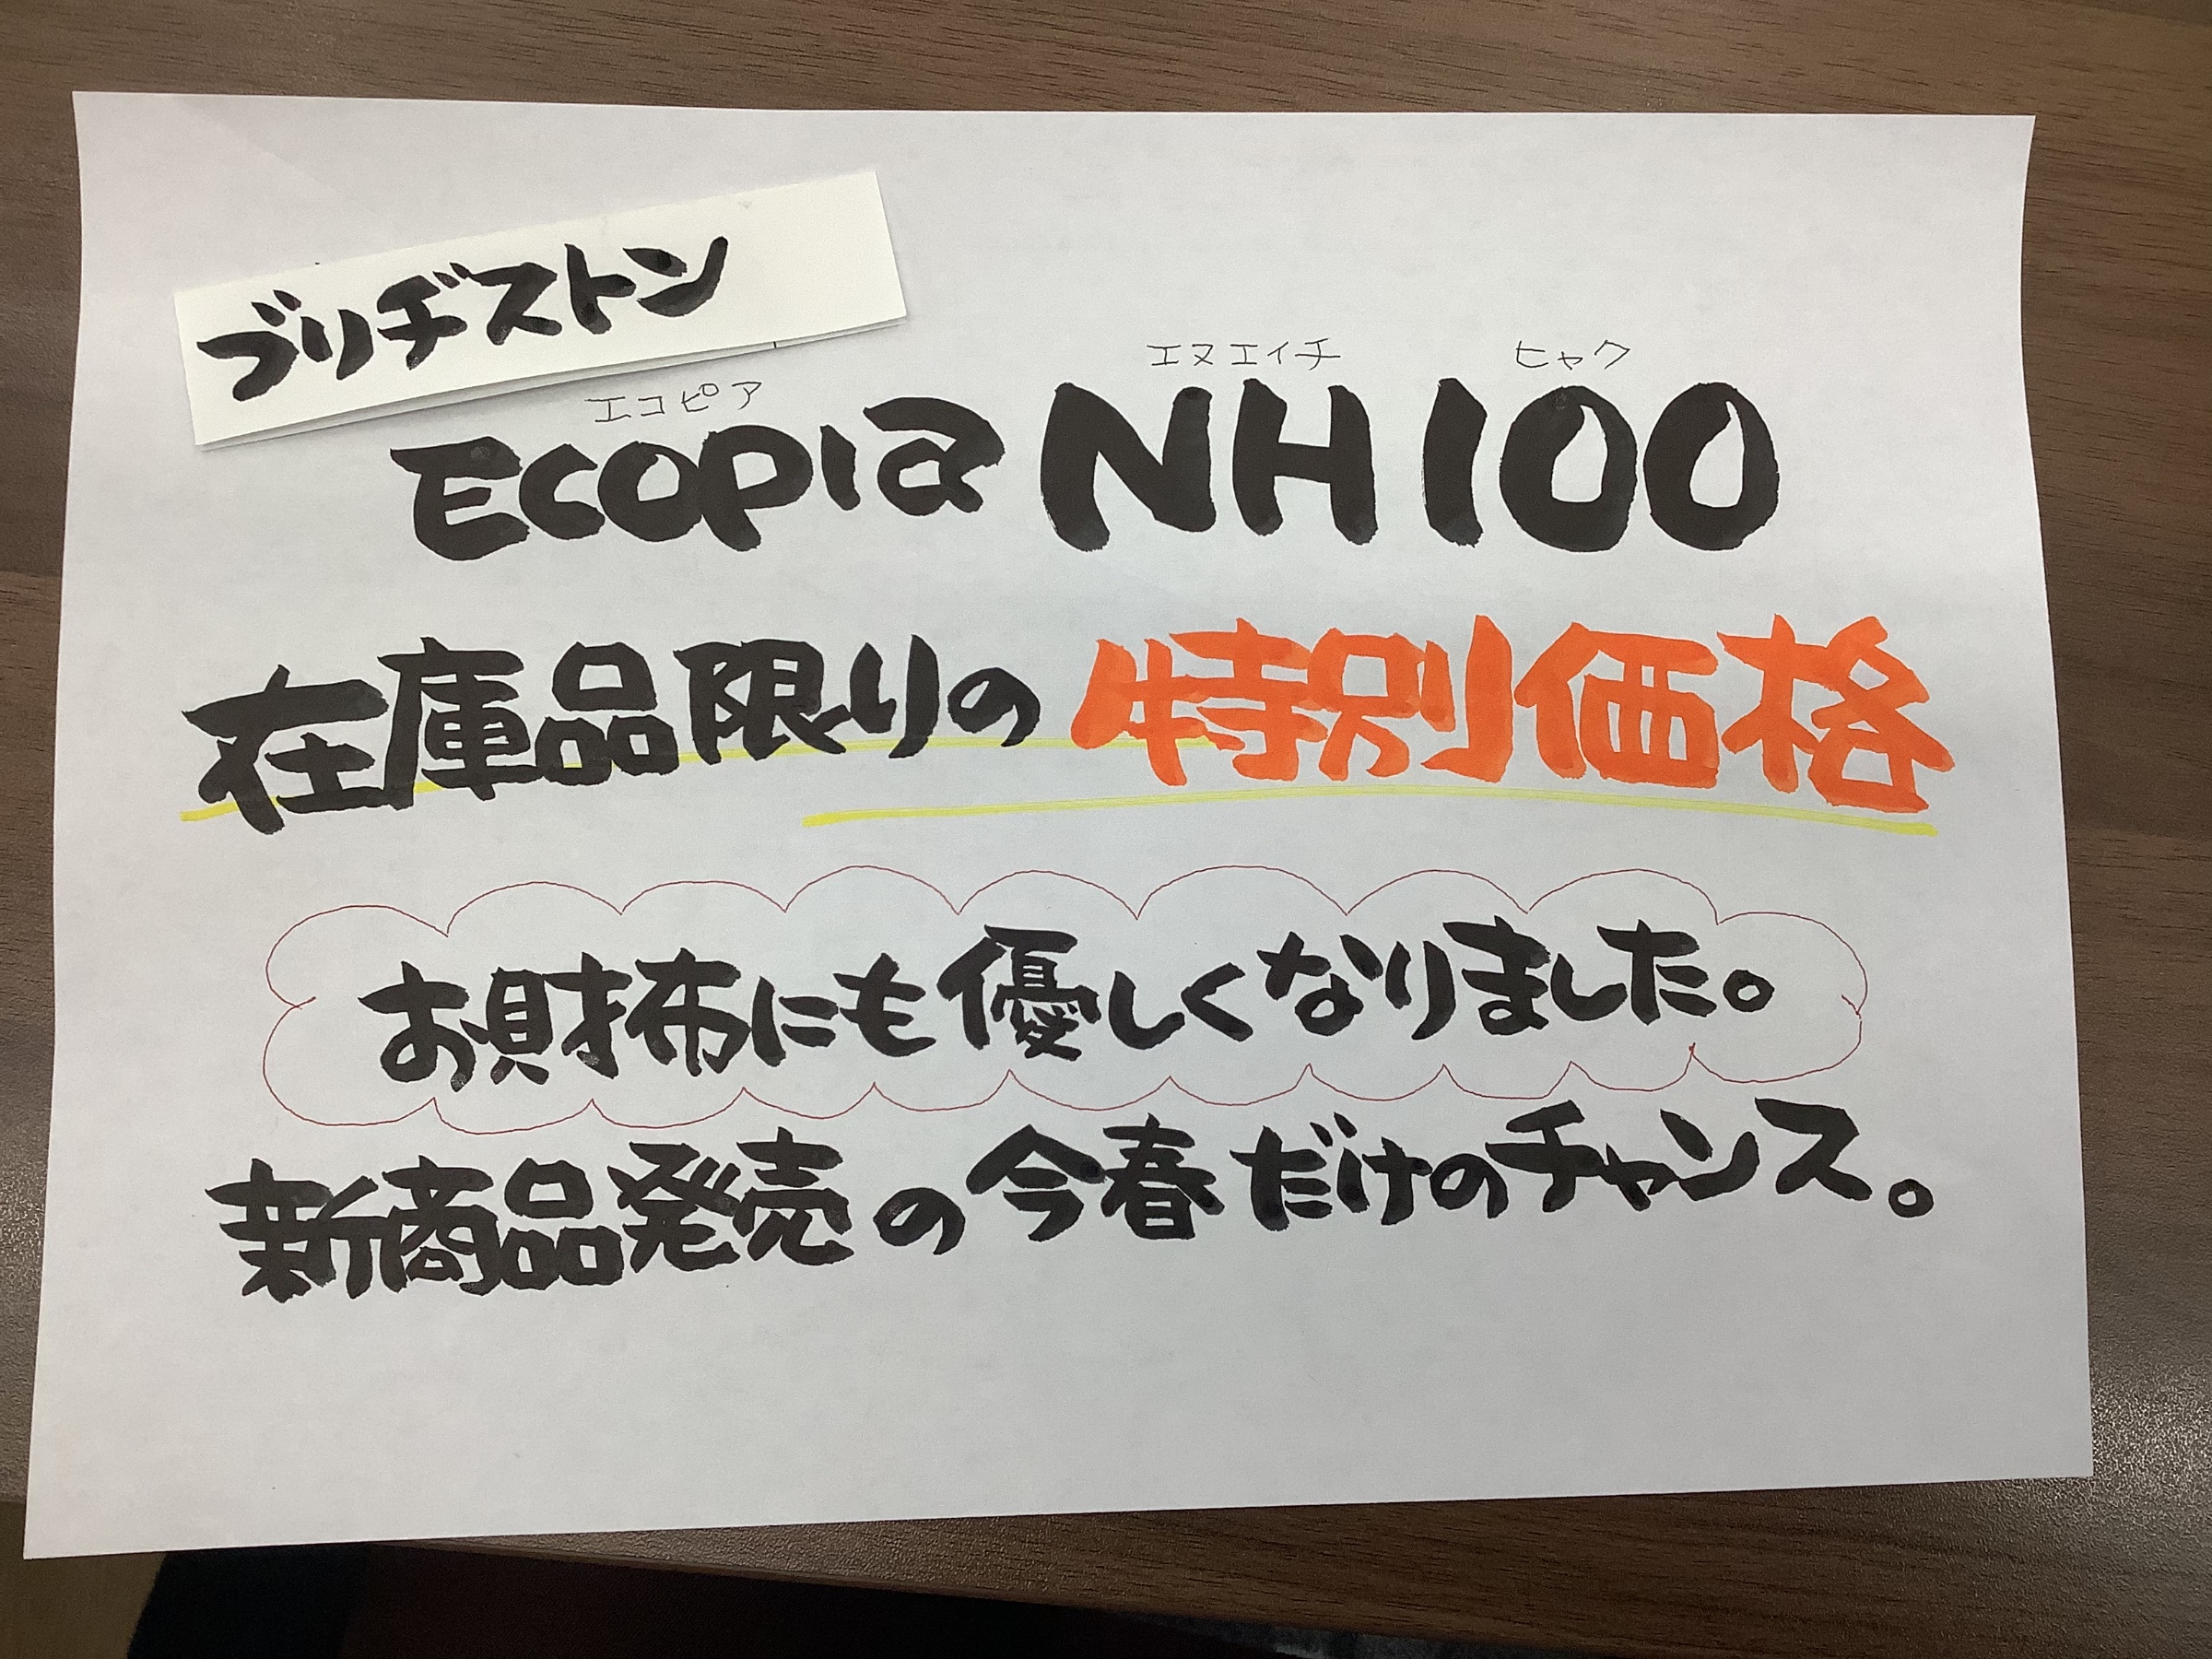 ブリヂストン
エコピア エヌエイチ ヒャク
Ecopia NH100
在庫品限りの特別価格
お財布にも優しくなりました。
新商品発売の今春だけのチャンス。